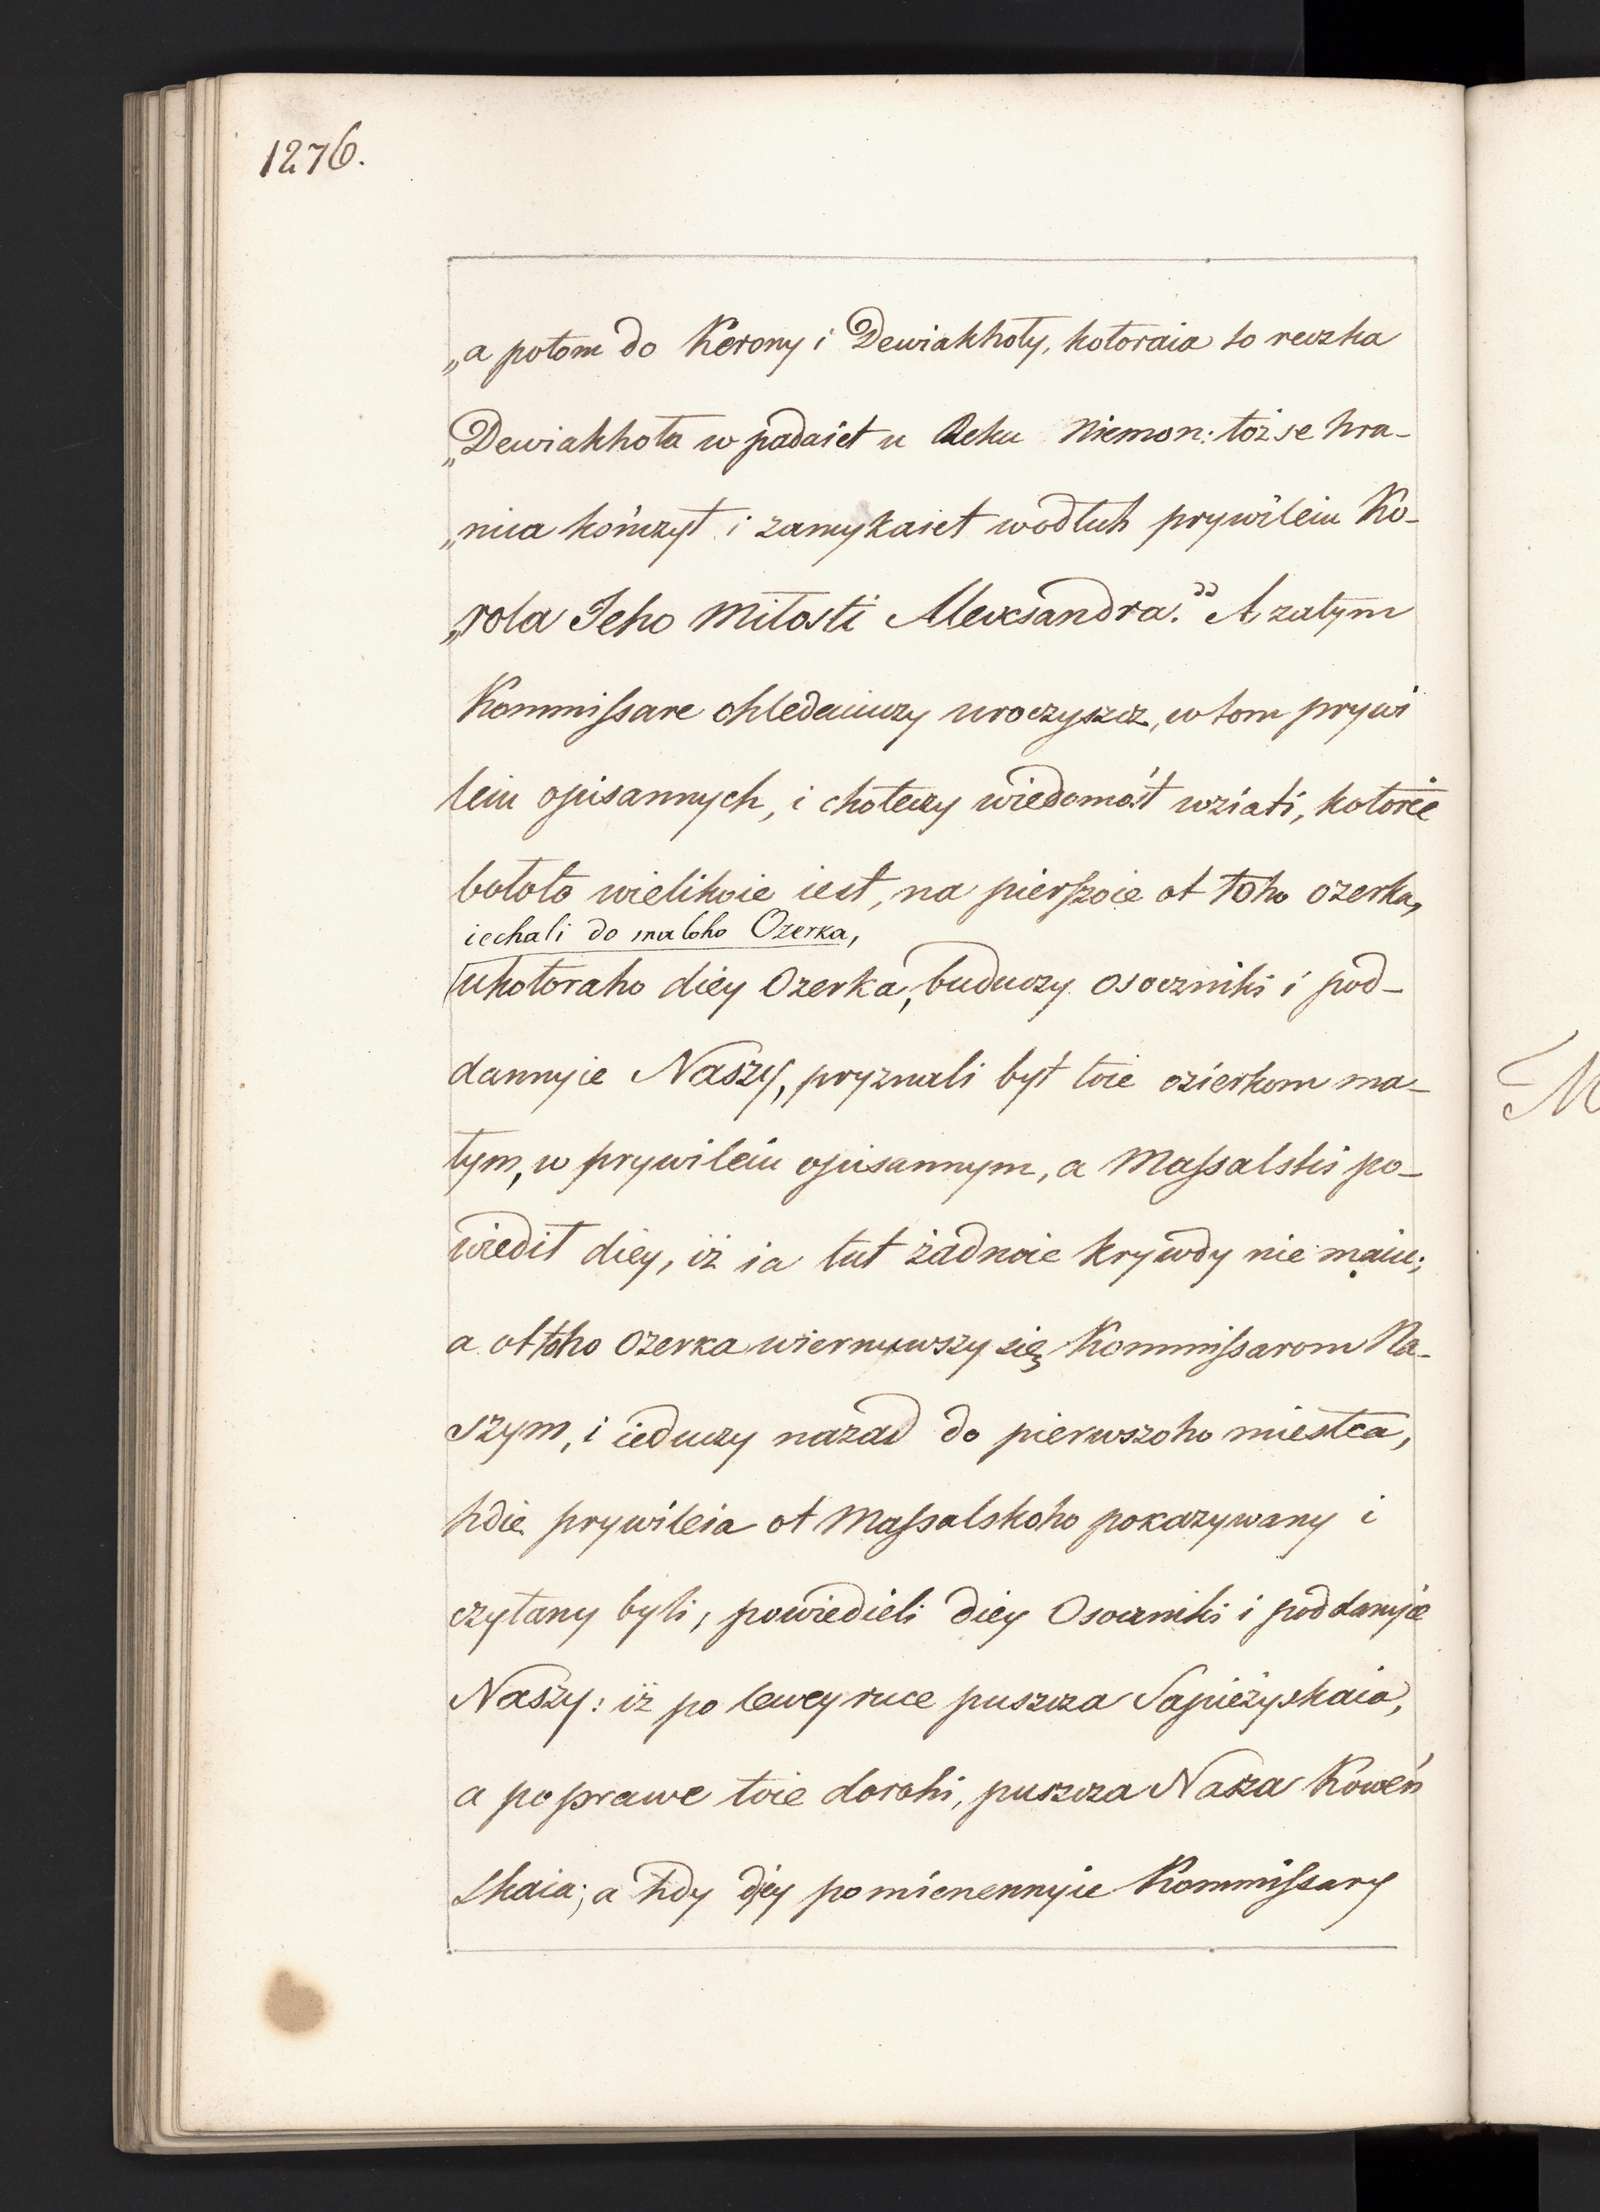 1276.
„a potom do Kerony i Dewiakhoły, kotoraia to reczka
„Dewiakhoła w padaiet u Reku Niemon: toż se hra-
„nica kończyt i zamykaiet wodłuh prywileiu Ko-
„rola Jeho Miłosti Alexsandra." A zatym
Kommissare ohledeiuczy uroczyszcz, w tom prywi
leiu opisannych, i choteczy wiedomost wziati, kotoroie
bołoto wielikoie iest, na pierszoie ot toho ozerka,
iechali do małoho Ozerka,
u kotoraho diey Ozerka, buduczy osoczniki i pod-
dannyie Naszy, pryznali byt toie ozierkom ma-
łym, w prywileiu opisannym, a Massalski po-
wiedił diey, iż ia tut żadnoie krywdy nie maiu;
a ot toho Ozerka wiernuwszy się Kommissarom Na-
szym, i ieduczy nazad do pierwszoho miestca,
hdie prywileia ot Massalskoho pokazywany i
czytany byli, powiedieli diey Osoczniki i poddanyie
Naszy: iż po lewey ruce puszcza Sapieżyskaia,
a po prawe toie dorohi, puszcza Nasza Koweń
skaia; a hdy diey pomienennyie Kommissary
M